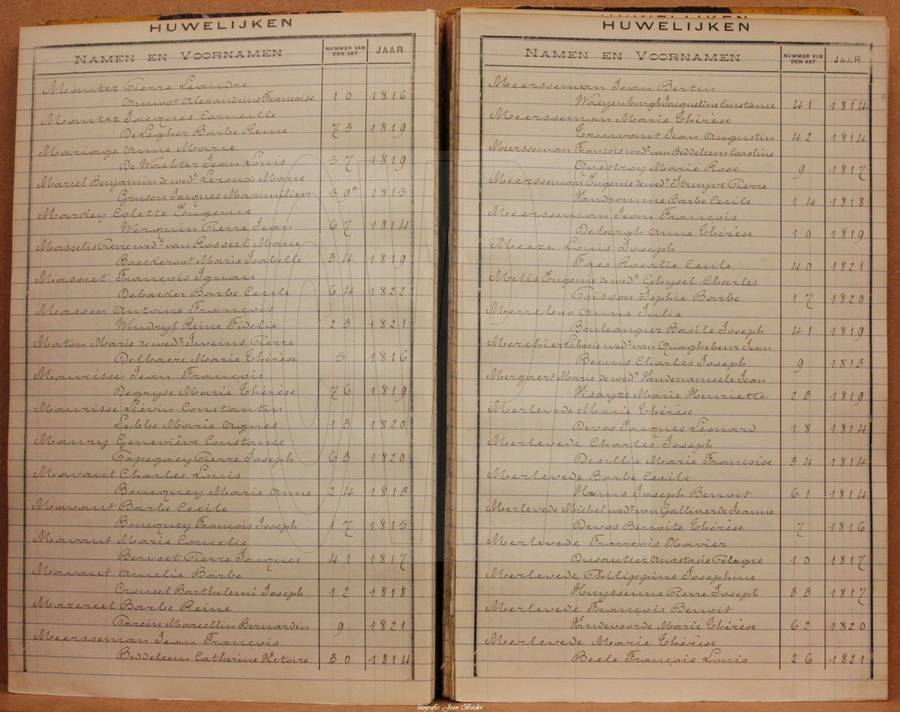 HUWELIJKEN
NAMEN EN VOORNAMEN NUMMER VAN DEN AKT JAAR
Mamtez Pierre Léandre
Annoot Alexandrine Françoise 10 1816
Mamtez Jacques Corneille
De Legher Barbe Reine 73 1819
Mariage Anne Marie
De Wachter Jean Louis 37 1819
Mariel Benjamin de wed. Leroux Marie
Gruson Jacques Maximilien 1813
Mardey Colette Eugenie
Werquin Pierre Jean 67 1814
Masselis Pierre wed. van Rosseel Marie
Baeckeroot Marie Isabelle 34 1819
Massiet François Ignace
Debacker Barbe Cecile 64 1822
Masson Antoine François
Windryf Reine Fidelie 23 1821
Maton Marie de wed. Inveins Pierre
Delbaere Marie Thérèse 5 1816
Maurisse Jean François
Degryse Marie Thérèse 76 1819
Maurisse Lievin Constantin
Leblle Marie Agnes 13 1820
Maury Geneviève Constance
Capegaey Pierre Joseph 63 1820
Mavant Charles Louis
Boucquey Marie Anne 24 1813
Mavaut Barbe Cecile
Boucquey François Joseph 17 1813
Mavaut Marie Cornelie
Beruset Pierre Jacques 41 1817
Mavaut Amelie Barbe
Crousel Barthelemi Joseph 12 1818
Mazereel Barbe Reine
Carein Marcellin Bernardin 9 1821
Meersseman Jean Francois
Beddeleem Catherine Victoire 30 1814
HUWELIJKEN
HUWELIJKEN
NAMEN EN VOORNAMEN NUMMER VAN DEN AKT JAAR
Meersseman Jean Bertin
Waeyenburgh Jacqueline Constance 41 1814
Meersseman Marie Thérèse
Truwant Jean Augustin 42 1814
Meersseman François wed. van Beddeleem Caroline
Questroy Marie Rose 9 1817
Meersseman Eugenie de wed. Struyve Pierre
Vandromme Barbe Cecile 14 1818
Meersseman Jean François
Debergh Anne Thérèse 10 1819
Meeze Louis Joseph
Faes Rosalie Cecile 40 1821
Melis Eugenie de wed. Gheysel Charles
Cusson Sophie Barbe 17 1820
Anne Julie
Boulanguer Basile Joseph 41 1819
Liborie wed. van Quaghebeur Jean
Beuns Charles Joseph 9 1813
Mergaert Marie de wed. Vandenameele Jean
Visayze Marie Henriette 23 1819
Merlevede Marie Thérèse
Devos Jacques Leonard 18 1814
Merlevede Charles Joseph
Desillie Marie Françoise 34 1814
Merlevede Barbe Cecile
Joseph Benoit 61 1814
Merlevede Michel wed. van Joanne
Devos Benoite Thérèse 7 1816
Merlevede François Xavier
Dusautier Anastasie Pélagie 10 1817
Merlevede Philippine Josephine
Huyssenne Pierre Joseph 33 1817
Merlevede François Benoit
Vandevoorde Marie Thérèse 62 1820
Merlevede Marie Thérèse
Beele François Louis 26 1821
fotografie Jean Bordes